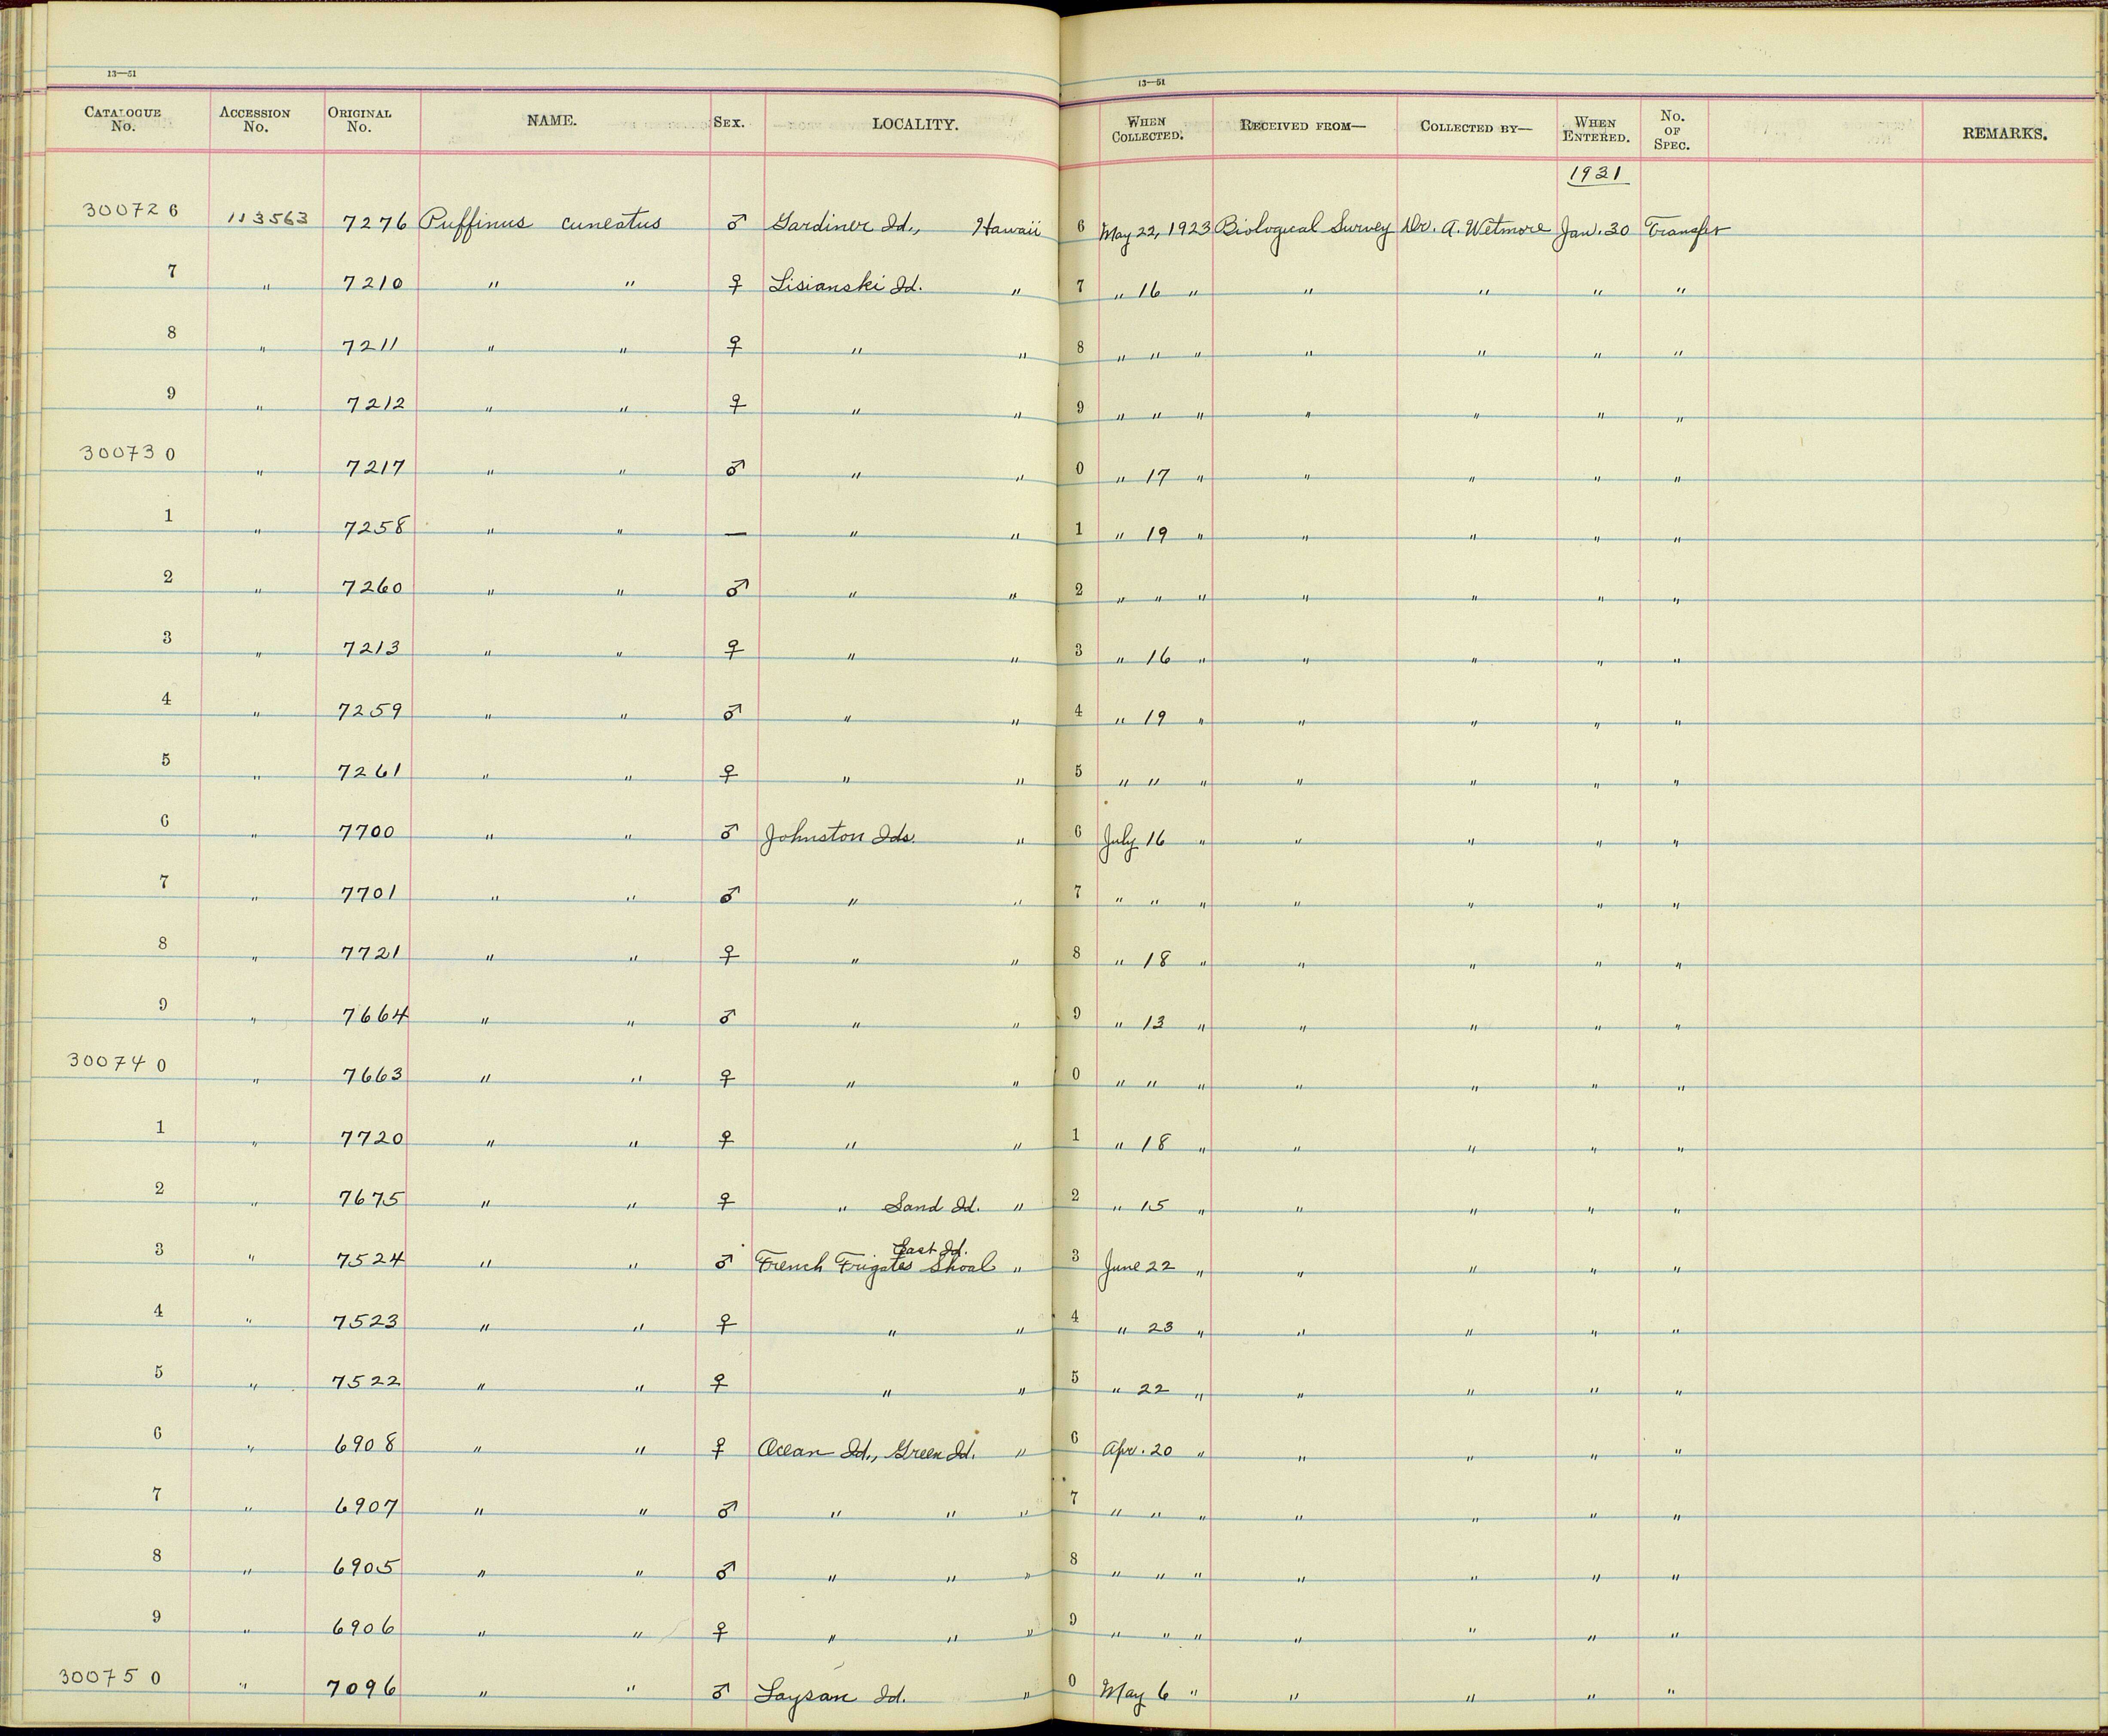 13—51
13—51
CATALOGUE No. ACCESSION No. ORIGINAL No. NAME. SEX. LOCALITY. WHEN COLLECTED. RECEIVED FROM— COLLECTED BY— WHEN ENTERED. No. OF SPEC. REMARKS.
1931
300726 113563 7276 Puffinus cuneatus ♂ Gardiner Id., Hawaii 6 May 22, 1923 Biological Survey Dr. A. Wetmore Jan. 30 Transfer
7 " 7210 " " ♀ Lisianski Id. " 7 " 16 " " " " "
8 " 7211 " " ♀ " " 8 " " " " " " "
9 " 7212 " " ♀ " " 9 " " " " " " "
300730 " 7217 " " ♂ " " 0 " 17 " " " " "
1 " 7258 " " — " " 1 " 19 " " " " "
2 " 7260 " " ♂ " " 2 " " " " " " "
3 " 7213 " " ♀ " " 3 " 16 " " " " "
4 " 7259 " " ♂ " " 4 " 19 " " " " "
5 " 7261 " " ♀ " " 5 " " " " " " "
6 " 7700 " " ♂ Johnston Ids. " 6 July 16 " " " " "
7 " 7701 " " ♂ " " 7 " " " " " " "
8 " 7721 " " ♀ " " 8 " 18 " " " " "
9 " 7664 " " ♂ " " 9 " 13 " " " " "
300740 " 7663 " " ♀ " " 0 " " " " " " "
1 " 7720 " " ♀ " " 1 " 18 " " " " "
2 " 7675 " " ♀ " Sand Id. " 2 " 15 " " " " "
East Id.
3 " 7524 " " ♂ French Frigates Shoal " 3 June 22 " " " " "
4 " 7523 " " ♀ " " 4 " 23 " " " " "
5 " 7522 " " ♀ " " 5 " 22 " " " " "
6 " 6908 " " ♀ Ocean Id., Green Id. " 6 Apr. 20 " " " " "
7 " 6907 " " ♂ " " " 7 " " " " " " "
8 " 6905 " " ♂ " " " 8 " " " " " " "
9 " 6906 " " ♀ " " " 9 " " " " " " "
300750 " 7096 " " ♂ Laysan Id. " 0 May 6 " " " " "